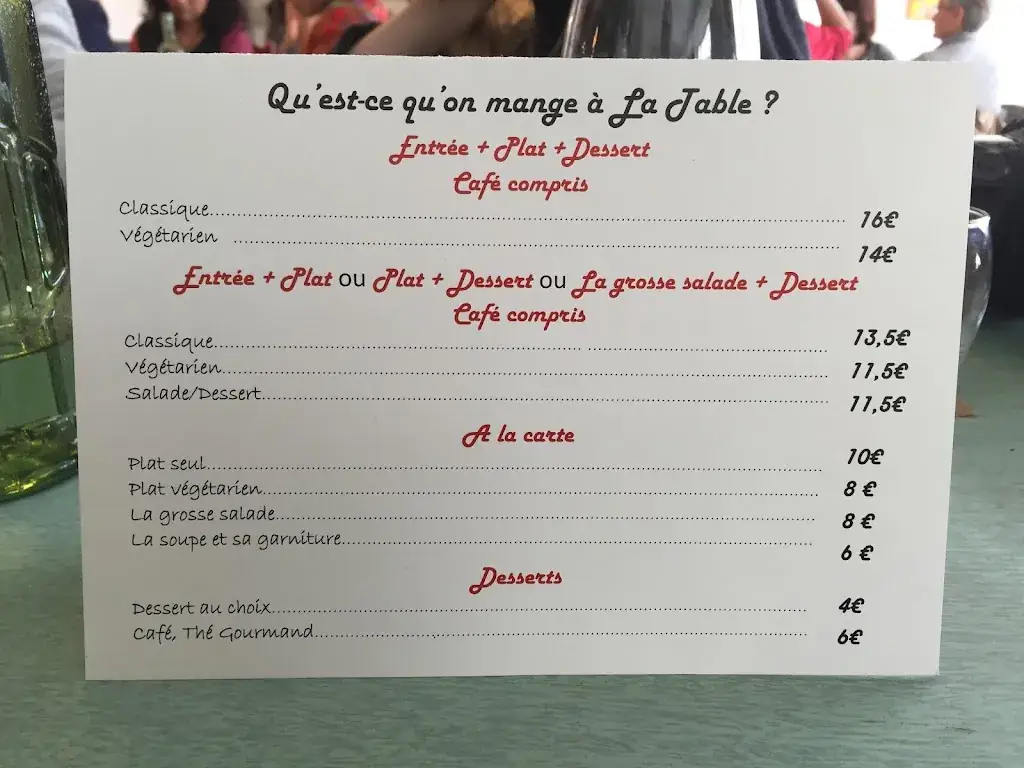 Qu'est-ce qu'on mange à La Table ?
Entrée + Plat + Dessert
Café compris
Classique.......... 16€
Végétarien .......... 14€
Entrée + Plat ou Plat + Dessert ou La grosse salade + Dessert
Café compris
Classique.......... 13,5€
Végétarien.......... 11,5€
Salade/Dessert.......... 11,5€
A la carte
Plat seul.......... 10€
Plat végétarien.......... 8 €
La grosse salade.......... 8 €
La soupe et sa garniture.......... 6 €
Desserts
Dessert au choix.......... 4€
Café, Thé Gourmand.......... 6€